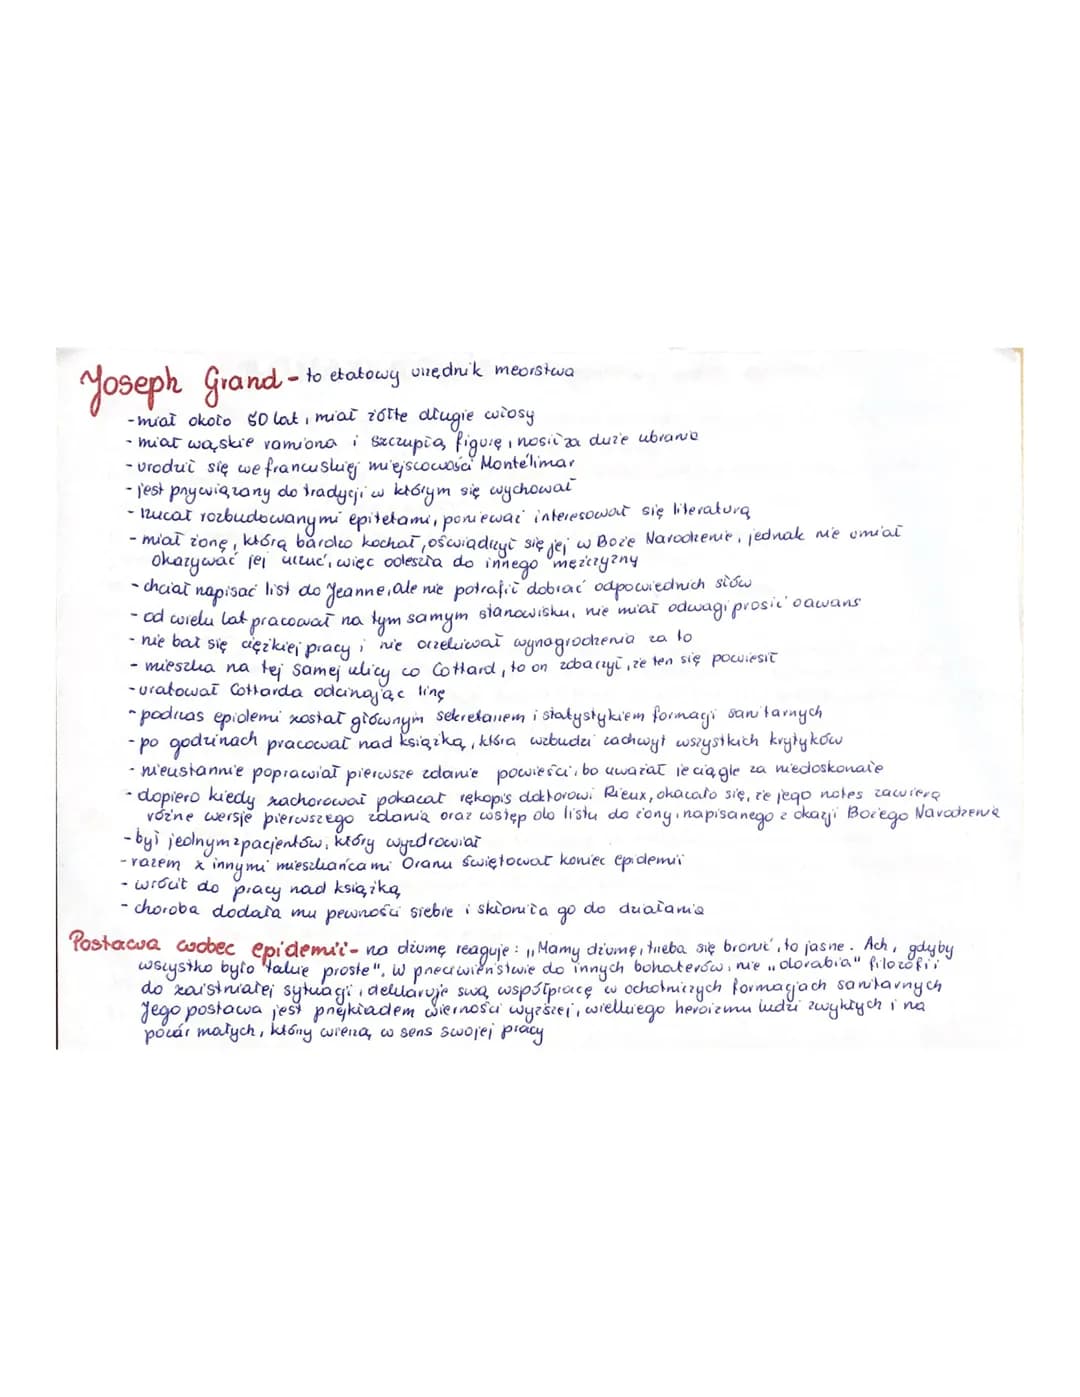 Joseph Grand - to etatowy urzędnik merostwa
- miał około 50 lat, miał żółte długie włosy
- miał wąskie ramiona i szczupłą figurę, nosił za duże ubrania
- urodził się we francuskiej miejscowości Montélimar
- jest przywiązany do tradycji w którym się wychował
- rzucał rozbudowanymi epitetami, ponieważ interesował się literaturą
- miał żonę, którą bardzo kochał, oświadczył się jej w Boże Narodzenie, jednak nie umiał
okazywać jej uczuć, więc odeszła do innego mężczyzny
- chciał napisać list do Jeanne, ale nie potrafił dobrać odpowiednich słów
- od wielu lat pracował na tym samym stanowisku, nie miał odwagi prosić o awans
- nie bał się ciężkiej pracy i nie oczekiwał wynagrodzenia za to
- mieszka na tej samej ulicy co Cottard, to on zobaczył, że ten się powiesił
- uratował Cottarda odcinając linę
- podczas epidemi został głównym sekretarzem i statystykiem formacji sanitarnych
- po godzinach pracował nad książką, która wzbudzi zachwyt wszystkich krytyków
- nieustannie poprawiał pierwsze zdanie powieści, bo uważał je ciągle za niedoskonałe
- dopiero kiedy zachorował pokazał rękopis doktorowi Rieux, okazało się, że jego notes zawiera
różne wersje pierwszego zdania oraz wstęp do listu do żony, napisanego z okazji Bożego Narodzenia
- był jednym z pacjentów, który wyzdrowiał
- razem z innymi mieszkańcami Oranu świętował koniec epidemii
- wrócił do pracy nad książką
- choroba dodała mu pewności siebie i skłoniła go do działania
Postawa wobec epidemii - na dżumę reaguje: ,,Mamy dżumę, trzeba się bronić, to jasne. Ach, gdyby
wszystko było takie proste", W przeciwieństwie do innych bohaterów, nie ,,dorabia" filozofii
do zaistniałej sytuacji, deklaruje swą współpracę w ochotniczych formacjach sanitarnych
Jego postawa jest przykładem wierności wyższej, wielkiego heroizmu ludzi zwykłych i na
pozór małych, którzy wierzą w sens swojej pracy